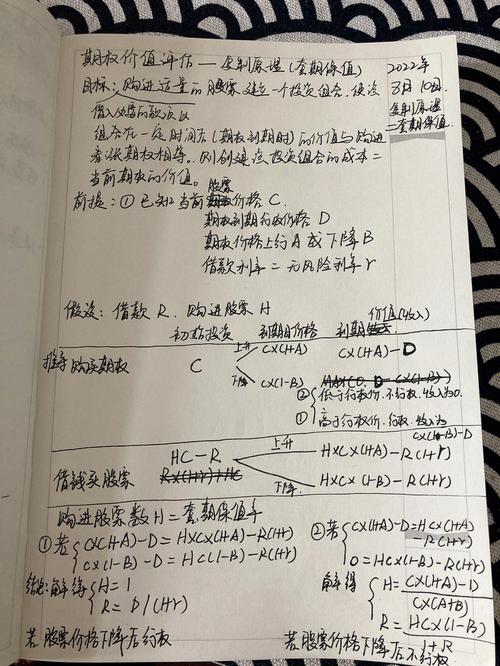 期权价值评估——复制原理(套期保值)
2022年
3月10日.
复制原理
—套期保值.
目标:购进适量的股票,建立一个投资组合,使该
借入必要的款项以
组合在一定时间后(期权到期时)的价值与购进
看涨期权相等。则创建该投资组合的成本=
当前期权的价值。
前提:①已知当前股票价格 C.
期权到期行权价格 D
期权价格上行 A 或下降 B
借款利率=无风险利率 r
假设:借款 R. 购进股票 H
初始投资 到期日价格 到期 价值(收入)
推导 购买期权 C 上升 C×(1+A) C×(1+A)-D
下降 C×(1-B) MAX(0, D-C×(1-B))
②低于行权价.不行权.收入为0.
①高于行权价.行权.收入为
C×(1-B)-D
借钱买股票 HC-R 上升 H×C×(1+A)-R(1+r)
下降 H×C×(1-B)-R(1+r)
购进股票数 H=套期保值率
①若 C×(1+A)-D=H×C×(1+A)-R(1+r)
C×(1-B)-D=HC(1-B)-R(1+r)
结论:解得 H=1
R=D/(1+r)
若股票价格下降后行权
②若 C×(1+A)-D=HC×(1+A)
-R(1+r)
0=HC×(1-B)-R(1+r)
解得 H=C×(1+A)-D
C×(A+B)
R=HC×(1-B)
1+R
若股票价格下降后不行权